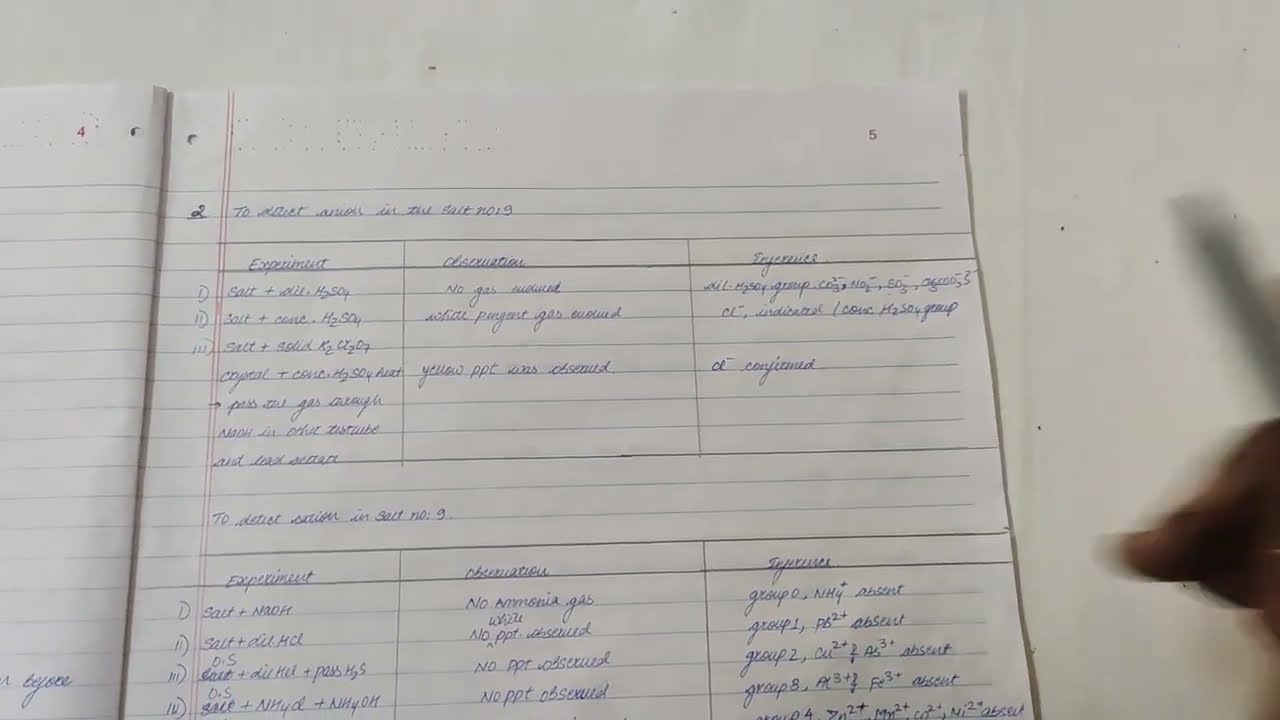 4
5
2 To detect anion in the salt no:9
Experiment Observation Inference
i) Salt + dil. H₂SO₄ No gas evolved dil. H₂SO₄ group CO₃²⁻, NO₂⁻, SO₃²⁻,
ii) Salt + conc. H₂SO₄ white pungent gas evolved Cl⁻, indicated / conc H₂SO₄ group
iii) Salt + solid K₂Cr₂O₇
crystal + conc. H₂SO₄ heat yellow ppt was observed Cl⁻ confirmed
→ pass the gas through
NaOH in other testtube
and lead acetate
To detect cation in salt no: 9.
Experiment Observation Inference
i) Salt + NaOH No Ammonia gas group 0, NH₄⁺ absent
white
ii) Salt + dil HCl No ppt. observed group 1, Pb²⁺ absent
O.S
iii) + dil HCl + pass H₂S No ppt observed group 2, Cu²⁺ & As³⁺ absent
O.S
iv) + NH₄Cl + NH₄OH No ppt observed group 3, Al³⁺ & Fe³⁺ absent
group 4, Zn²⁺, Mn²⁺, Co²⁺, Ni²⁺ absent
before